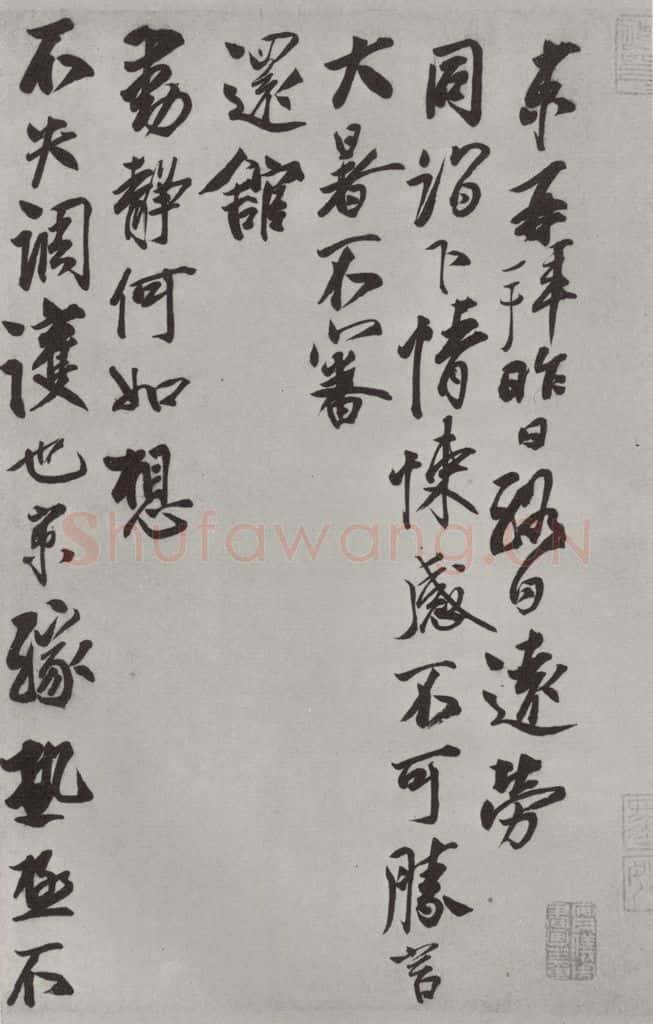 京再拜昨日終日遠勞
同詣下情悚感不可勝言
大暑不審
還舘
動靜何如想
不失調護也京緣熱極不
Shufawang.CN